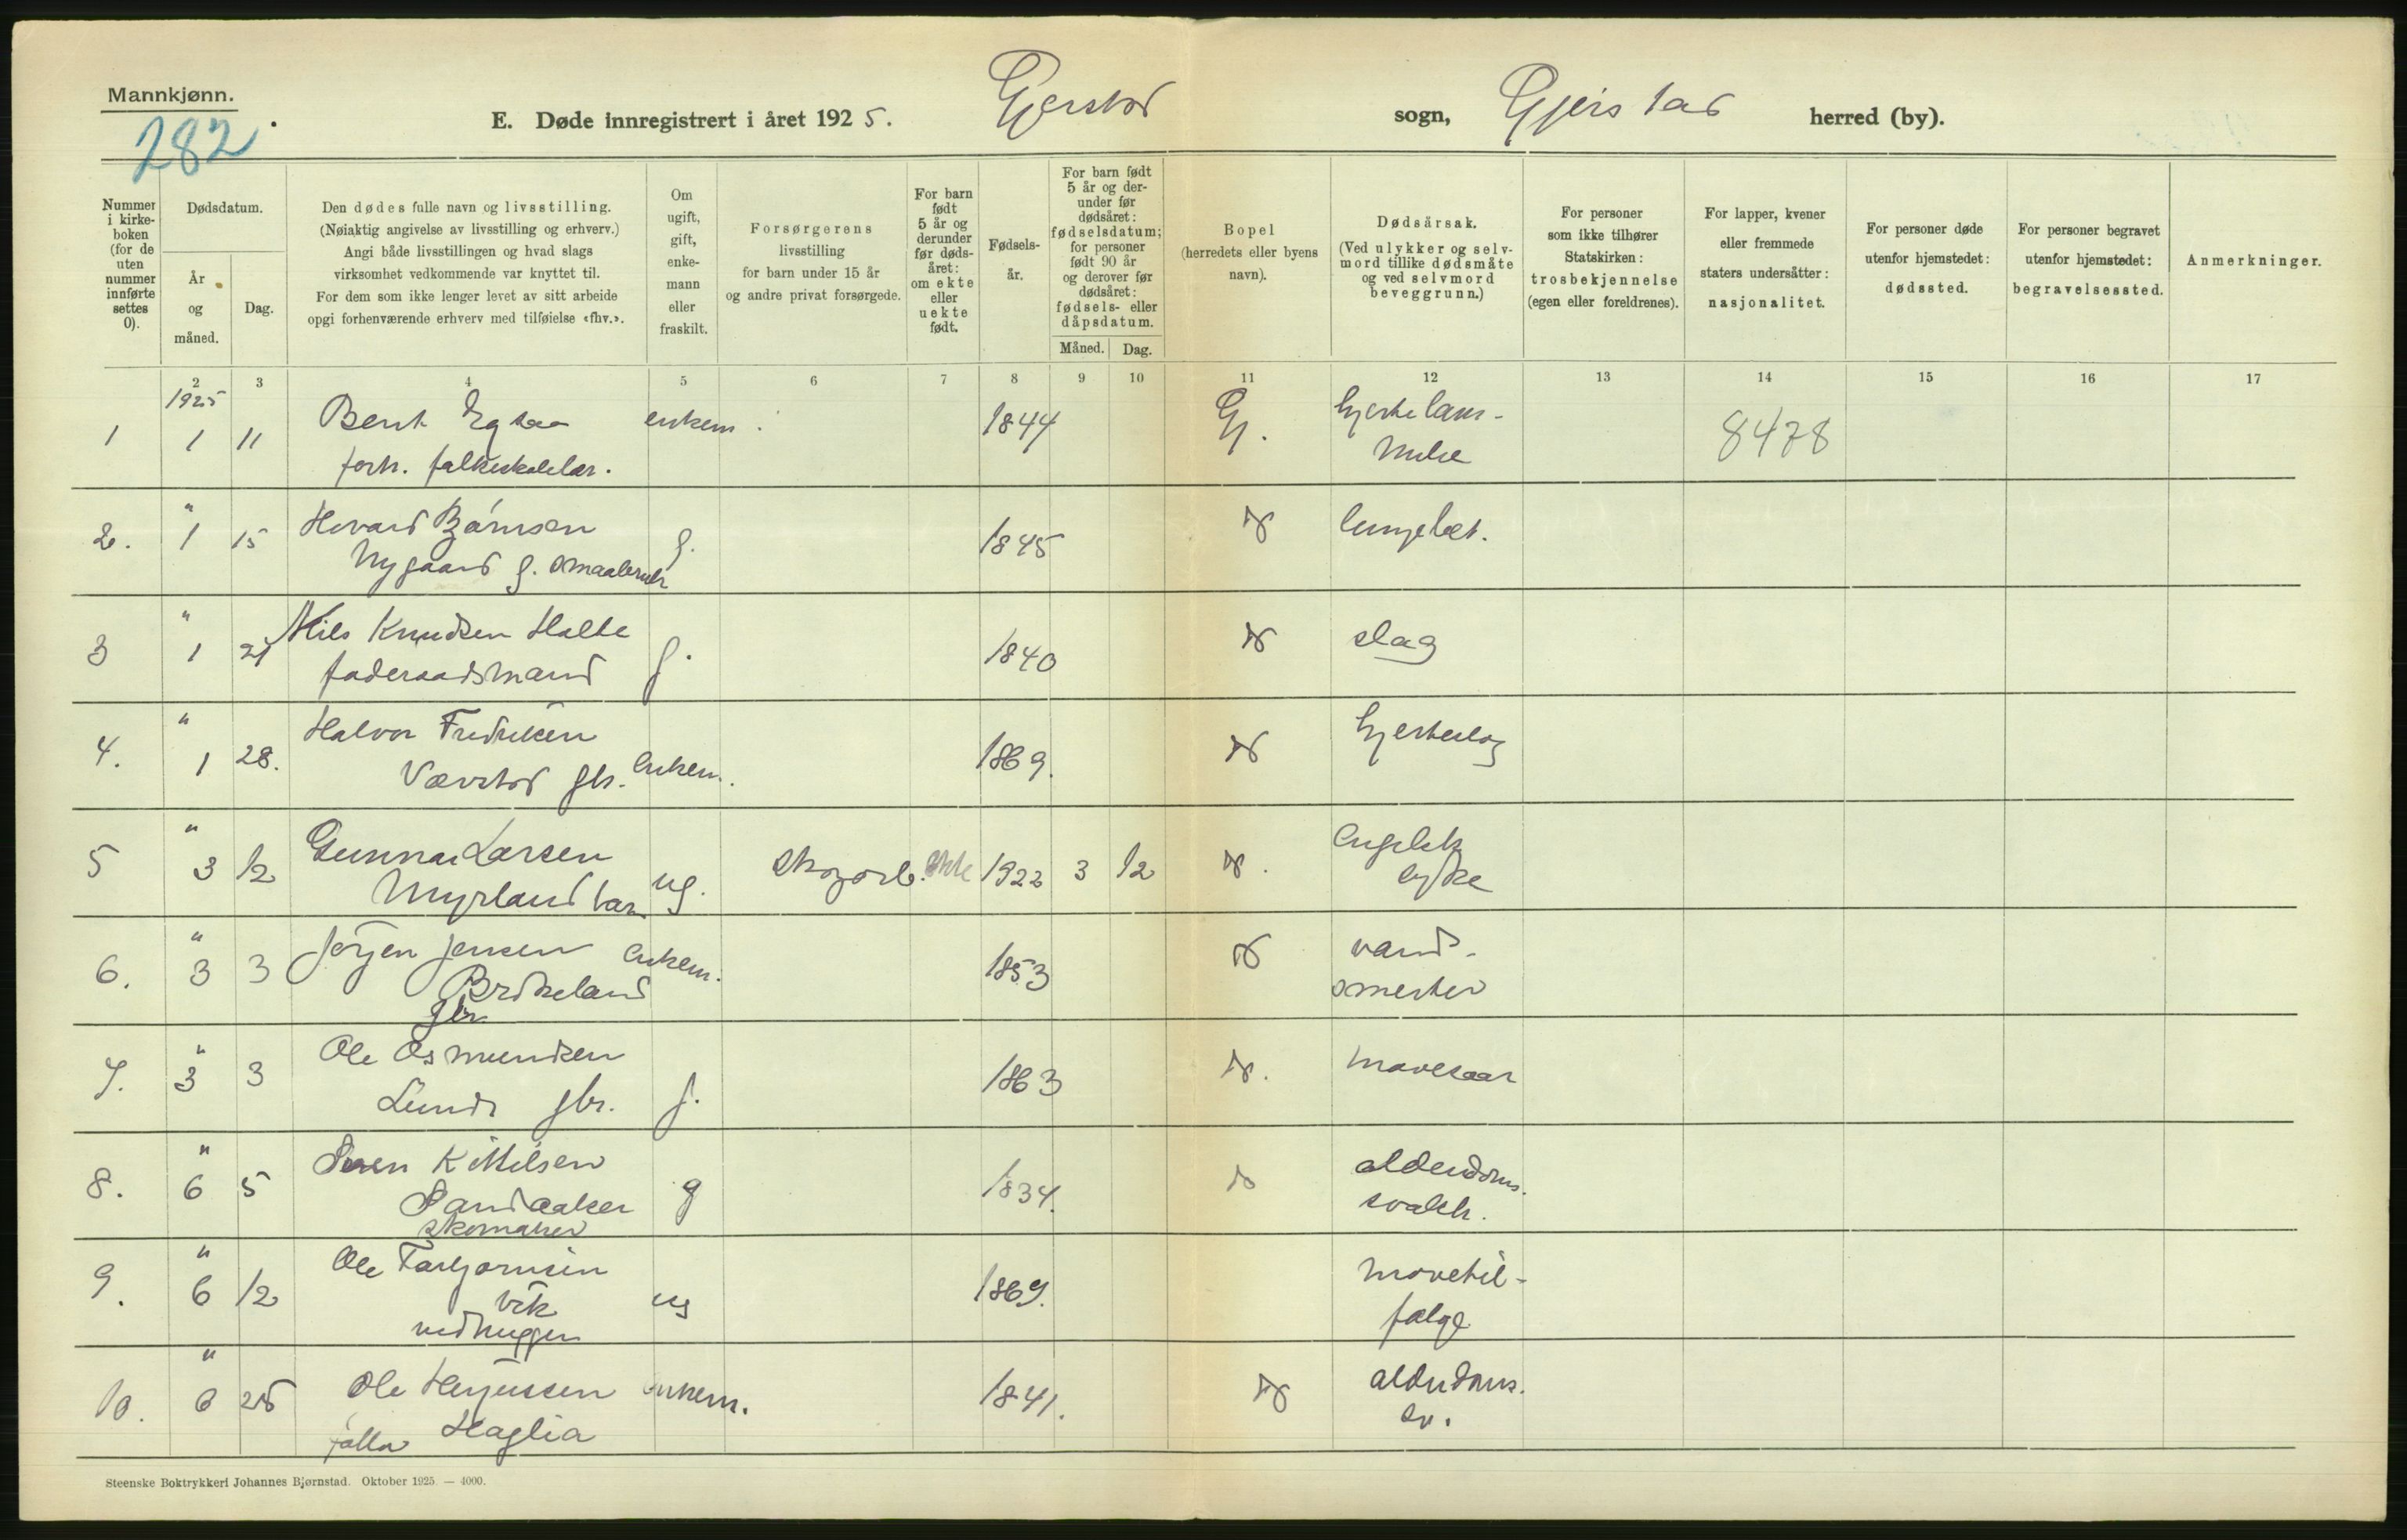 Mannkjønn.
282.
E. Døde innregistrert i året 1925. Gjerstad sogn, Gjerstad herred (by).
Nummer i kirkeboken (for de uten nummer innførte settes 0).
Dødsdatum.
År og måned.
Dag.
Den dødes fulle navn og livsstilling.
(Nøiaktig angivelse av livsstilling og erhverv.)
Angi både livsstillingen og hvad slags
virksomhet vedkommende var knyttet til.
For dem som ikke lenger levet av sitt arbeide
opgi forhenværende erhverv med tilføielse «fhv.».
Om ugift, gift, enkemann eller fraskilt.
Forsørgerens
livsstilling
for barn under 15 år
og andre privat forsørgede.
For barn født 5 år og derunder før dødsåret: om ekte eller uekte født.
Fødselsår.
For barn født 5 år og derunder før dødsåret: fødselsdatum; for personer født 90 år og derover før dødsåret: fødsels- eller dåpsdatum.
Måned. Dag.
Bopel
(herredets eller byens
navn).
Dødsårsak.
(Ved ulykker og selvmord tillike dødsmåte og ved selvmord beveggrunn.)
For personer
som ikke tilhører
Statskirken:
trosbekjennelse
(egen eller foreldrenes).
For lapper, kvener
eller fremmede
staters undersåtter:
nasjonalitet.
For personer døde
utenfor hjemstedet:
dødssted.
For personer begravet
utenfor hjemstedet:
begravelsessted.
Anmerkninger.
2 3 4 5 6 7 8 9 10 11 12 13 14 15 16 17
1925
1 1 11 Bent enkem. 1844 Gj. hjertelam- 8478
forh. folkeskolelær. melse
2. " 1 15 Hovard Bjørnsen g. 1845 lungebet.
Nygaard g.
3 " 1 21 Nils Knudsen Holte g. 1840 slag
føderaadsmand
4. " 1 28. Halvor Fredriksen enkem. 1869. hjerteslag
Vævstad gbr.
5 " 3 12 Gunnar Larsen ug. skogarb. ekte 1922 3 12 engelsk
Myrland barn syke
6. " 3 3 Jørgen Jensen enkem. 1853 vand-
Brokeland smerter
gbr
7. " 3 3 Ole Osmundsen g. 1863 mavesaar
Lunde gbr.
8. " 6 5 Søren Kittilsen g 1834. alderdoms.
Sandaaker svakh.
skomaker
9. " 6 12 Ole Torbjørnsen ug 1869. mavetil-
Vik fælge
vedhugger
10. " 6 25 Ole enkem. 1841. alderdoms.
Haglia sv.
Steenske Boktrykkeri Johannes Bjørnstad. Oktober 1925. — 4000.